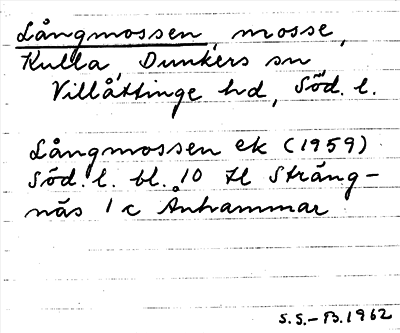 Långmossen, mosse,
Kulla, Dunkers sn
Villåttinge hd, Söd. l.
Långmossen ek (1959)
Söd. l. bl. 10 tl Sträng-
näs 1 c Ånhammar
S.S.-B. 1962